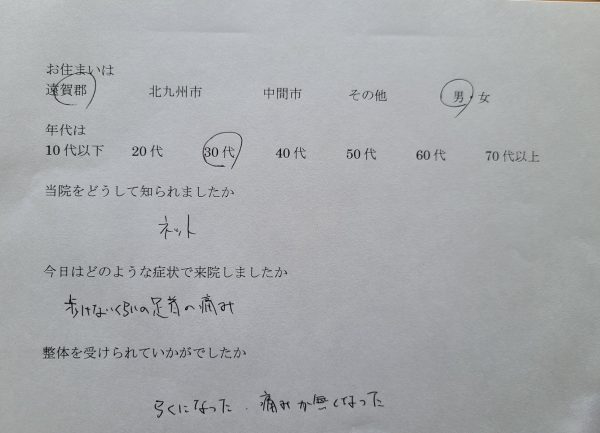 お住まいは
遠賀郡 北九州市 中間市 その他 男・女
年代は
10代以下 20代 30代 40代 50代 60代 70代以上
当院をどうして知られましたか
ネット
今日はどのような症状で来院しましたか
歩けないくらいの足首の痛み
整体を受けられていかがでしたか
らくになった、痛みが無くなった